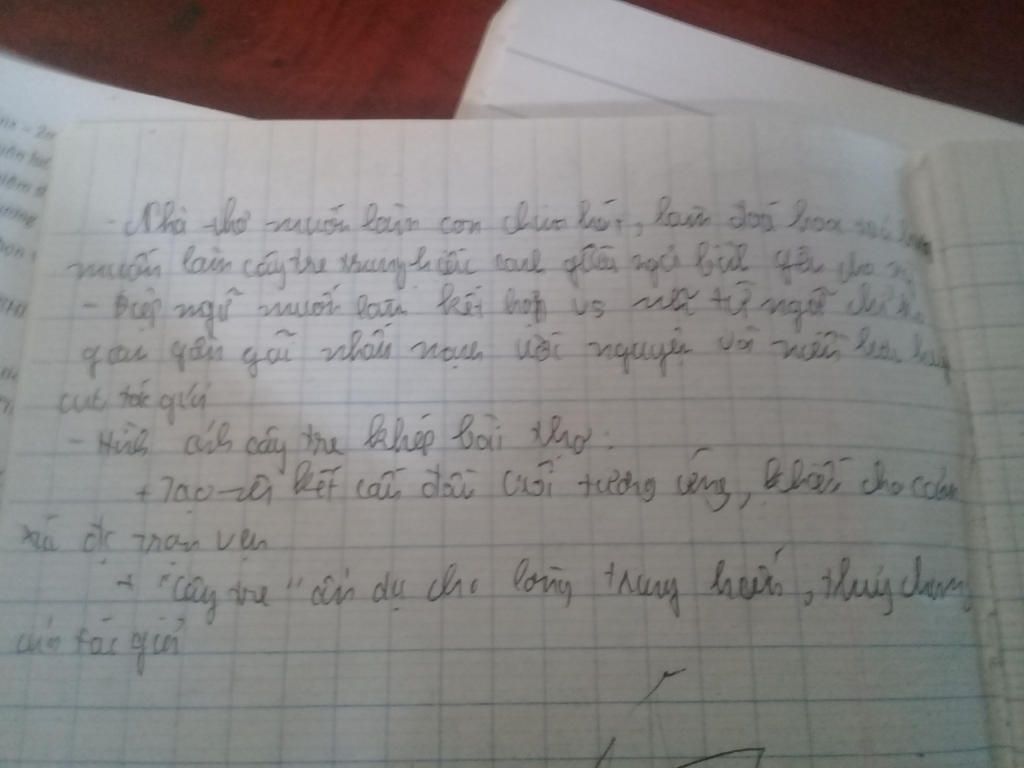 - Nhà thơ muốn làm con chim hót, làm đoá hoa toả hương
muốn làm cây tre trung hiếu canh giữa ngủ bình yên cho ng
- Điệp ngữ muốn làm kết hợp vs từ ngữ chỉ
gần gũi nhấn mạnh ước nguyện và niềm
của tác giả
- Hình ảnh cây tre khép bài thơ:
+ Tạo ra kết cấu đầu cuối tương ứng, khiến cho cảm
xúc đc trọn vẹn
+ "Cây tre" ẩn dụ cho lòng trung hiếu, thuỷ chung
của tác giả